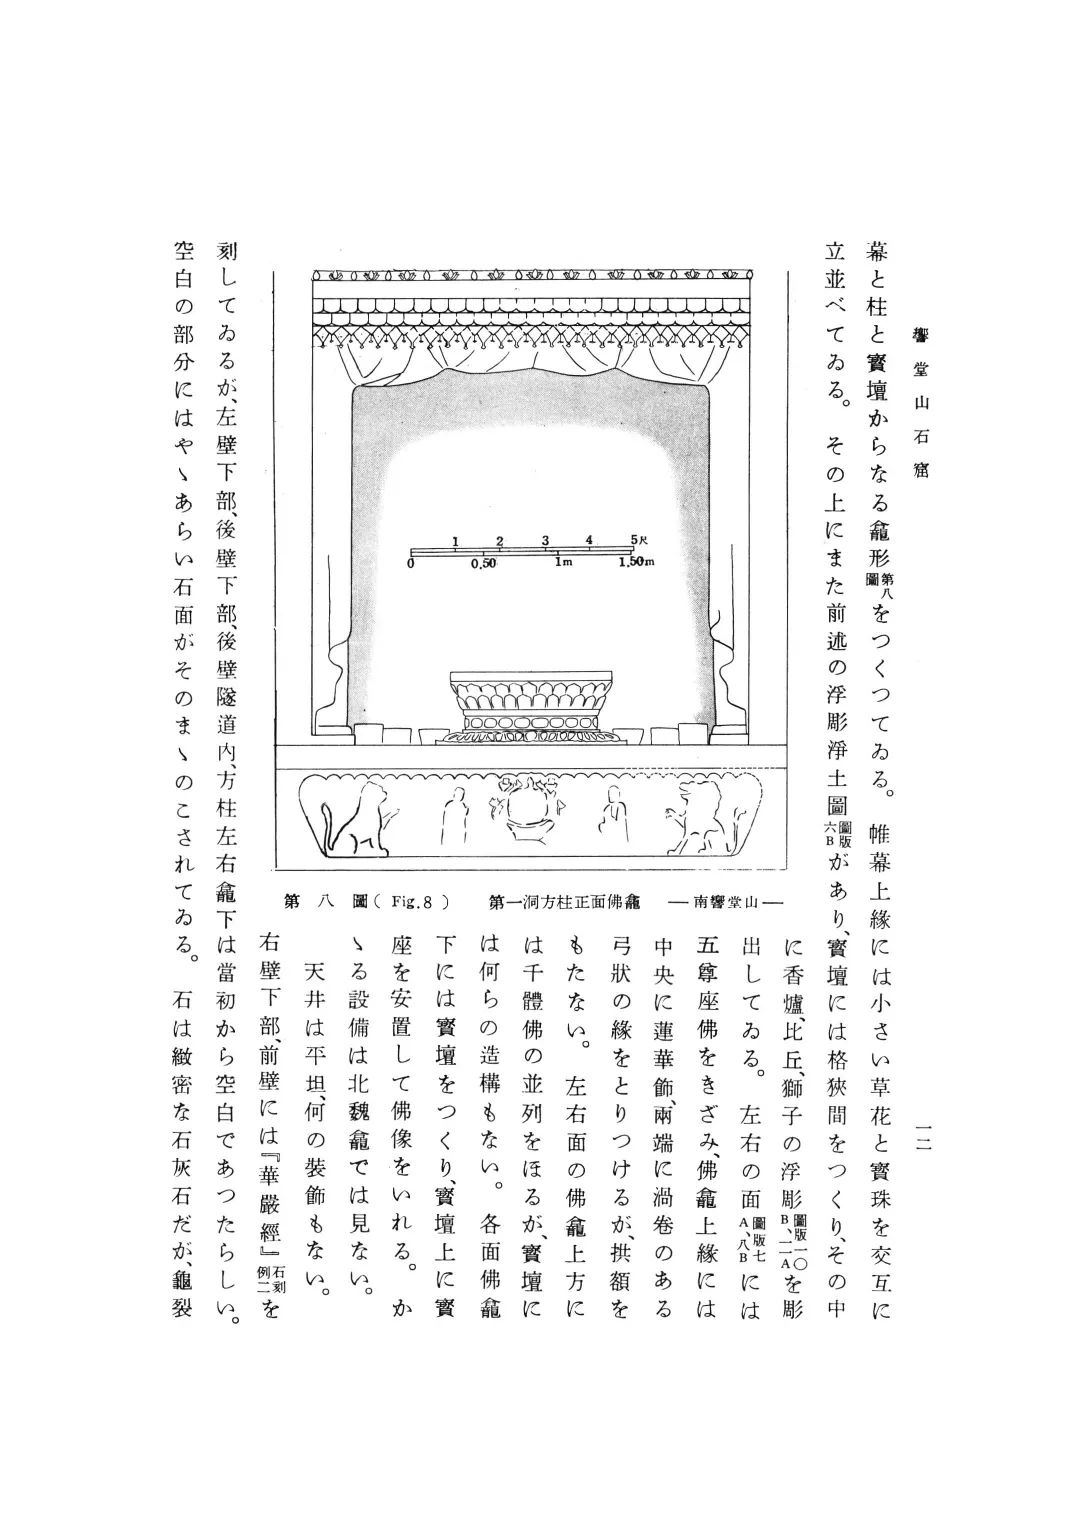 響堂山石窟
一二
幕と柱と寳壇からなる龕形第八圖をつくつてゐる。帷幕上縁には小さい草花と寳珠を交互に
立並べてゐる。その上にまた前述の浮彫淨土圖圖版六Bがあり、寳壇には格狹間をつくり、その中
に香爐、比丘、獅子の浮彫圖版一〇B、一一Aを彫
出してゐる。左右の面圖版七A、八Bには
五尊座佛をきざみ、佛龕上縁には
中央に蓮華飾、兩端に渦卷のある
弓狀の縁をとりつけるが、拱額を
もたない。左右面の佛龕上方に
は千體佛の並列をほるが、寳壇に
は何らの造構もない。各面佛龕
下には寳壇をつくり、寳壇上に寳
座を安置して佛像をいれる。か
ゝる設備は北魏龕では見ない。
天井は平坦、何の裝飾もない。
右壁下部、前壁には『華嚴經』石刻例二を
刻してゐるが、左壁下部、後壁下部、後壁隧道内、方柱左右龕下は當初から空白であつたらしい。
空白の部分にはやゝあらい石面がそのまゝのこされてゐる。石は緻密な石灰石だが、龜裂
1 2 3 4 5尺
0 0.50 1m 1.50m
第八圖(Fig.8) 第一洞方柱正面佛龕 —南響堂山—